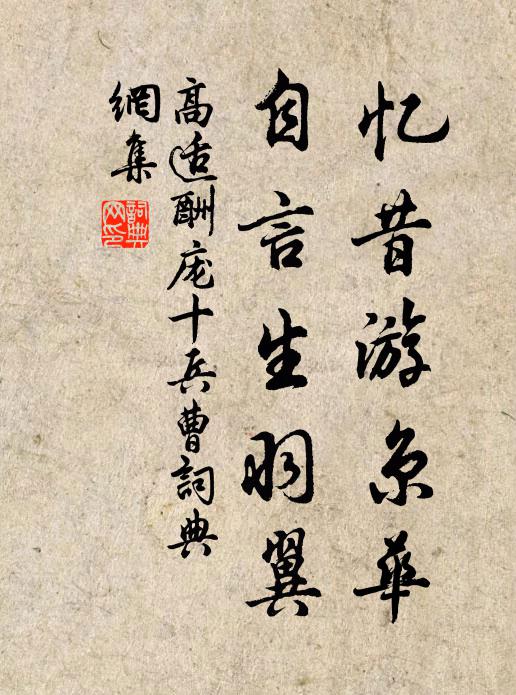 忆昔游京華
自言生羽翼
高适酬庞十兵曹詞典
網集
詞典
网印